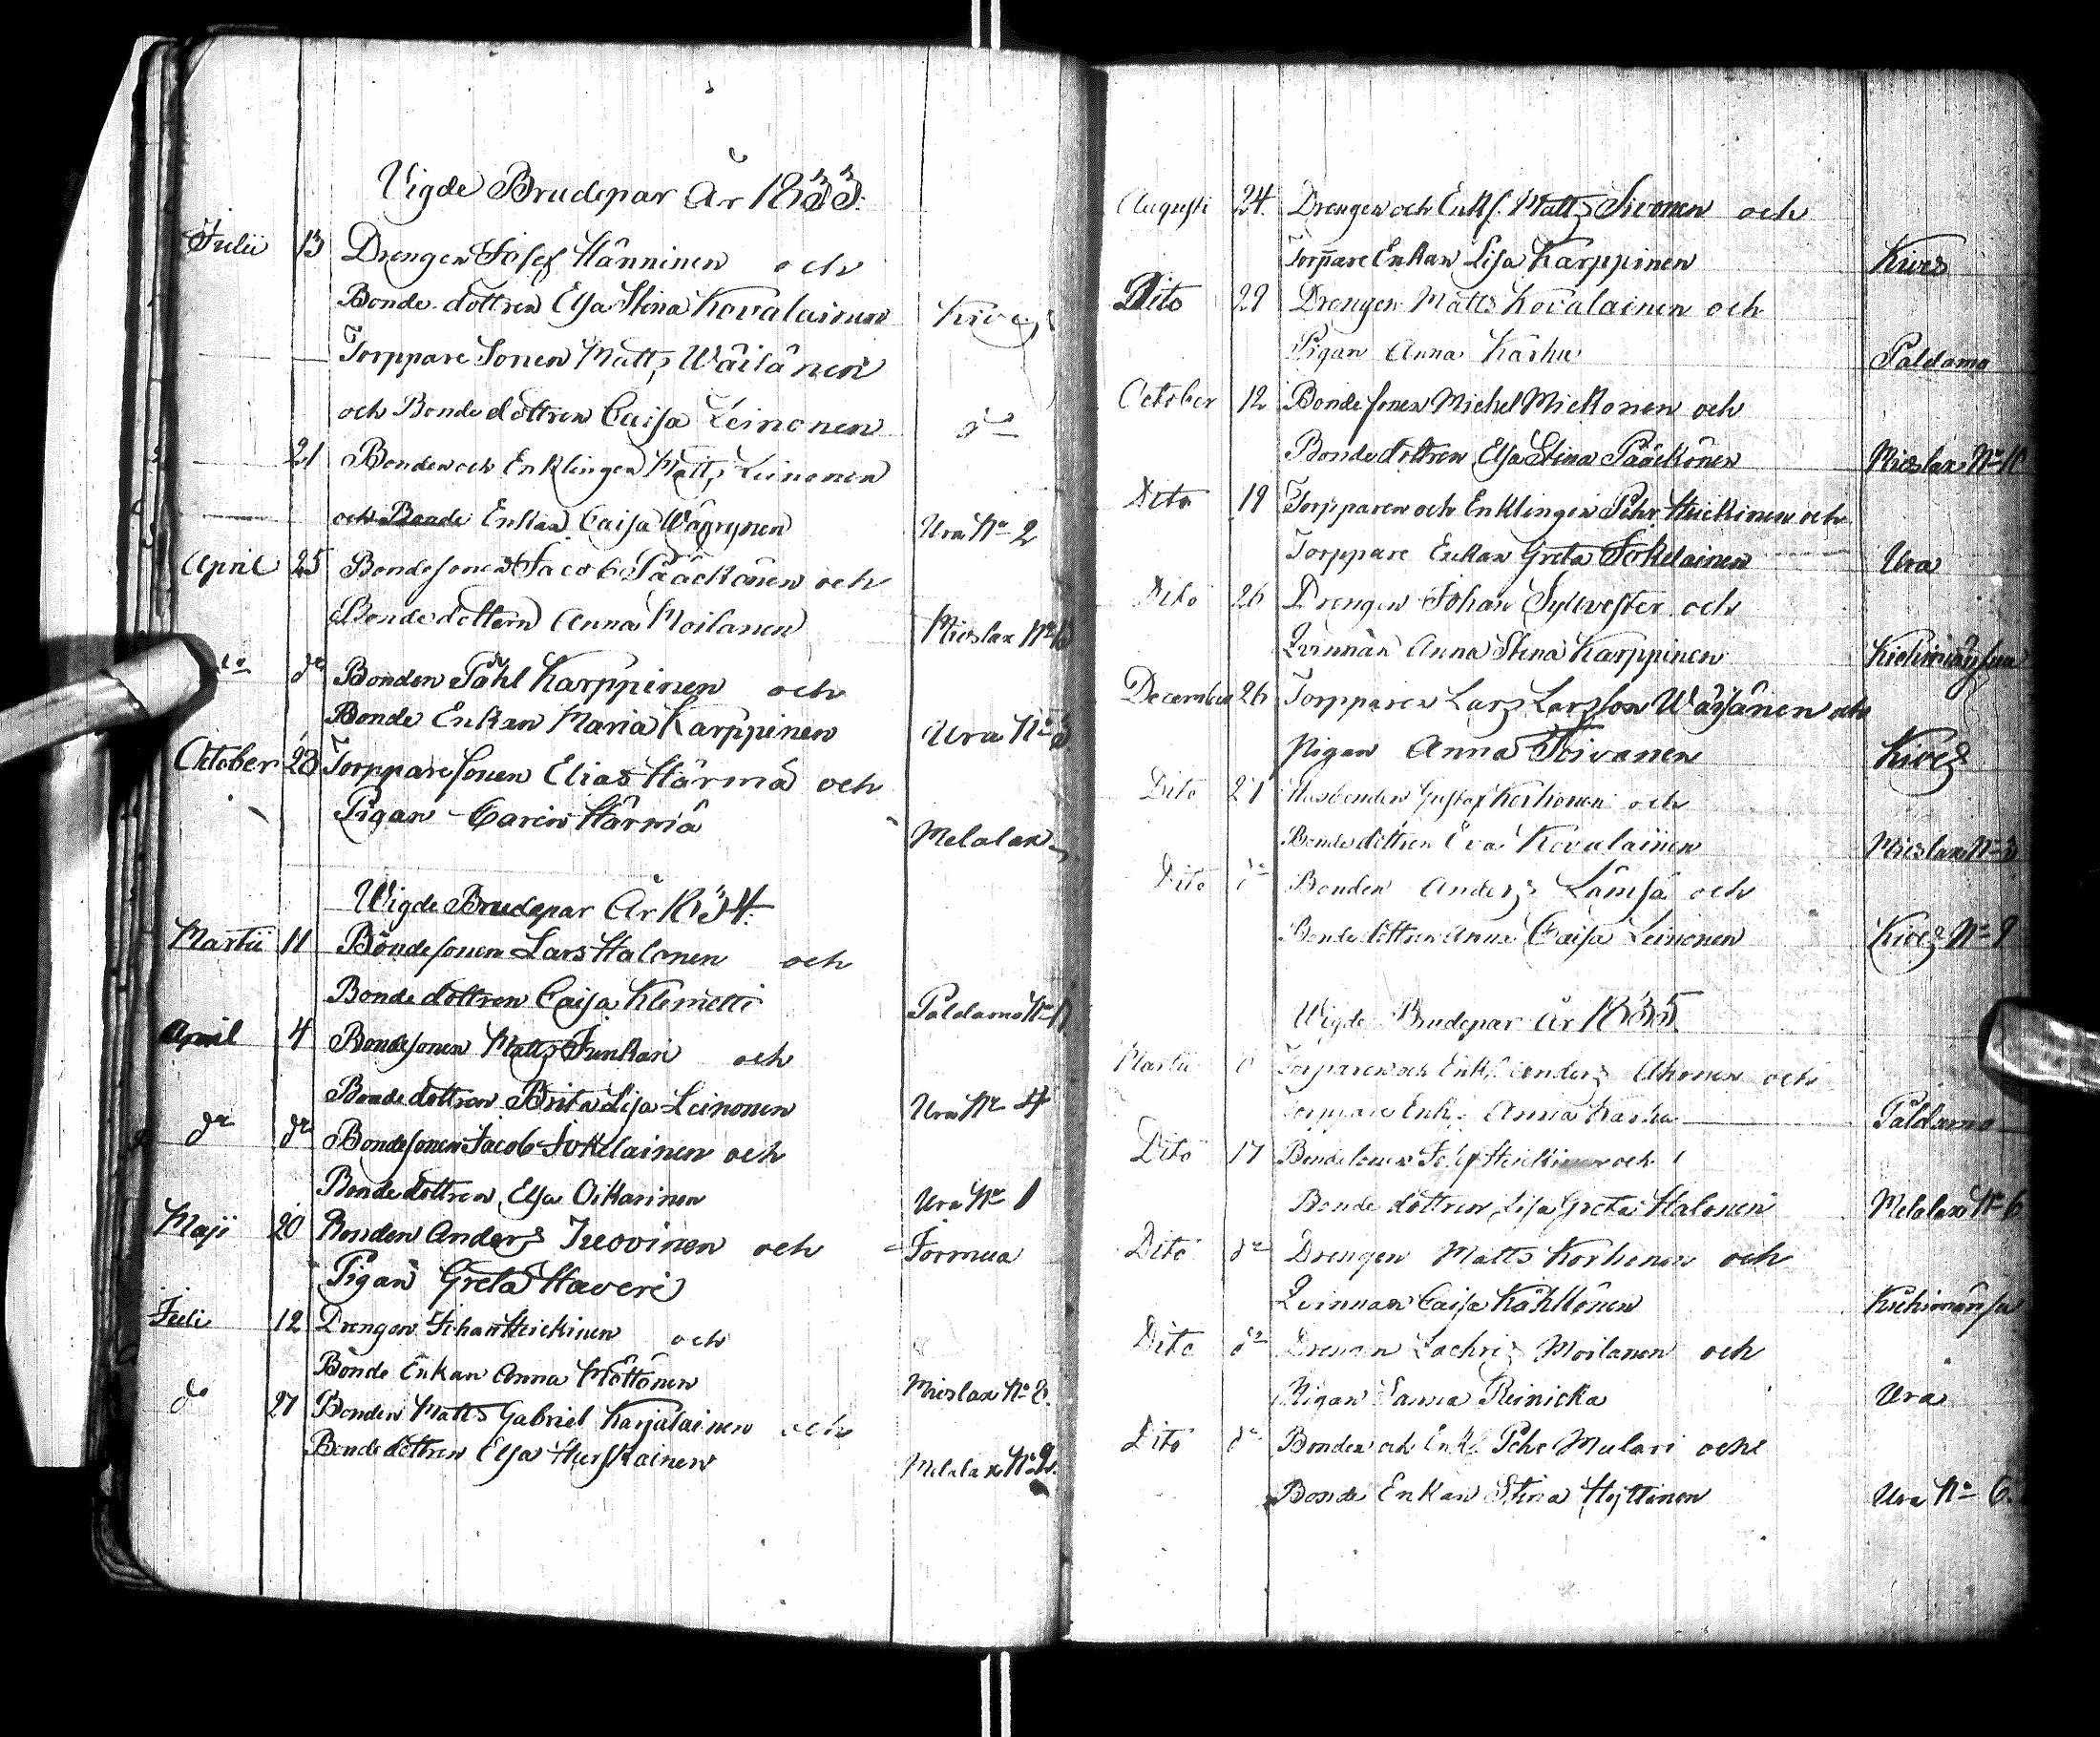 Vigde Brudepar År 1833.
Julii 13 Drengen Josef Hänninen och
Bonde dottren Elsa Stina Kovalainen Kives
Torppare Sonen Matts Wäisänen
och Bonde dottren Caisa Leinonen do
21 Bonden och Enklingen Matts Leinonen
och Bonde Enkan Caisa Wäyrynen Ura No 2
April 25 Bondesonen Jacob Pääckönen och
Bonde dottern Anna Moilanen Mieslax No
do do Bonden Påhl Karppinen och
Bonde Enkan Maria Karppinen Ura No 3
October 28 Torppare sonen Elias Härmä och
Pigan Carin Härmä Melalax
Wigde Brudepar År 1834.
Martii 11 Bondesonen Lars Halonen och
Bonde dottren Caisa Klemetti Paldamo No
April 4 Bondesonen Matts Junkari och
Bonde dottren Brita Lisa Leinonen Ura No 4
do do Bondesonen Jacob Jokelainen och
Bonde dottren Elsa Oikarinen Ura No 1
Maji 20 Bonden Anders Juovinen och Jormua
Pigan Greta Haveri
Juli 12 Drengen Johan Heickinen och
Bonde Enkan Anna Möttönen Mieslax No
do 27 Bonden Matts Gabriel Karjalainen och
Bonde dottren Elsa Hurskainen Melalax No 2.
Augusti 24. Drengen och Enkl. Matts Sivonen och
Torppare Enkan Lisa Karppinen Kives
Dito 29 Drengen Matts Kovalainen och
Pigan Anna Karhu Paldamo
October 12 Bonde sonen Michel Mickonen och
Bonde dottren Elsa Stina Pääckönen Mieslax No 10
Dito 19 Torpparen och Enklingen Pehr Heickinen och
Torppare Enkan Greta Jokelainen Ura
Dito 26 Drengen Johan Sylvester och
Qvinnan Anna Stina Karppinen
December 26 Torpparen Lars Larsson Wäisänen och
Pigan Anna Toivanen Kives
Dito 27 Husbonden Gustaf Korhonen och
Bonde dottren Eva Kovalainen Mieslax No 3
Dito do Bonden Anders Lämsä och
Bonde dottren Anna Caisa Leinonen Kives No 9
Wigde Brudepar År 1835
Martii Torparen och Enkl. Anders Ahonen och
Torppare Enk. Anna Karhu Paldamo
Dito 17 Bondesonen Josef Heickinen och
Bonde dottren Lisa Greta Halonen Melalax No 6
Dito do Drengen Matts Korhonen och
Qvinnan Caisa Kähkönen
Dito do Drengen Zachris Moilanen och
Pigan Sanna Reinicka Ura
Dito do Bonden och Enkl. Pehr Mulari och
Bonde Enkan Stina Hyttinen Ura No 6.